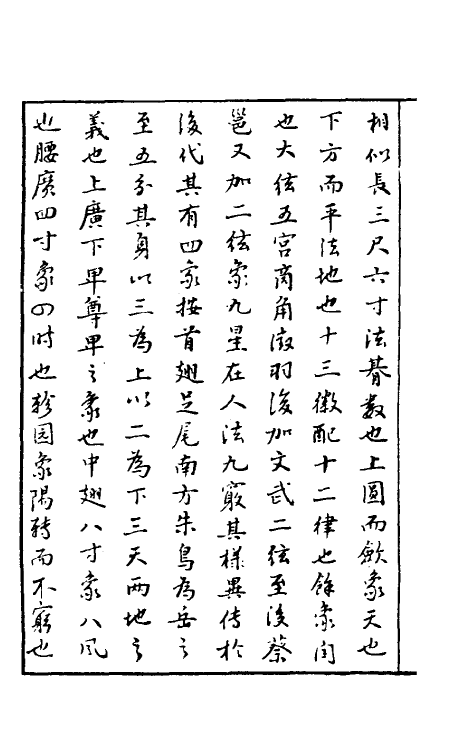 相似長三尺六寸法朞数也上圓而斂象天也
下方而平法地也十三徽配十二律也餘象闰
也大弦五宫商角徵羽後加文武二弦至後蔡
邕又加二弦象九星在人法九竅其樣異传於
後代其有四象按首翅足尾南方朱鳥為岳之
至五分其身以三為上以二為下三天两地之
義也上廣下卑尊卑之象也中翅八寸象八风
也腰廣四寸象四时也軫园象陽转而不窮也